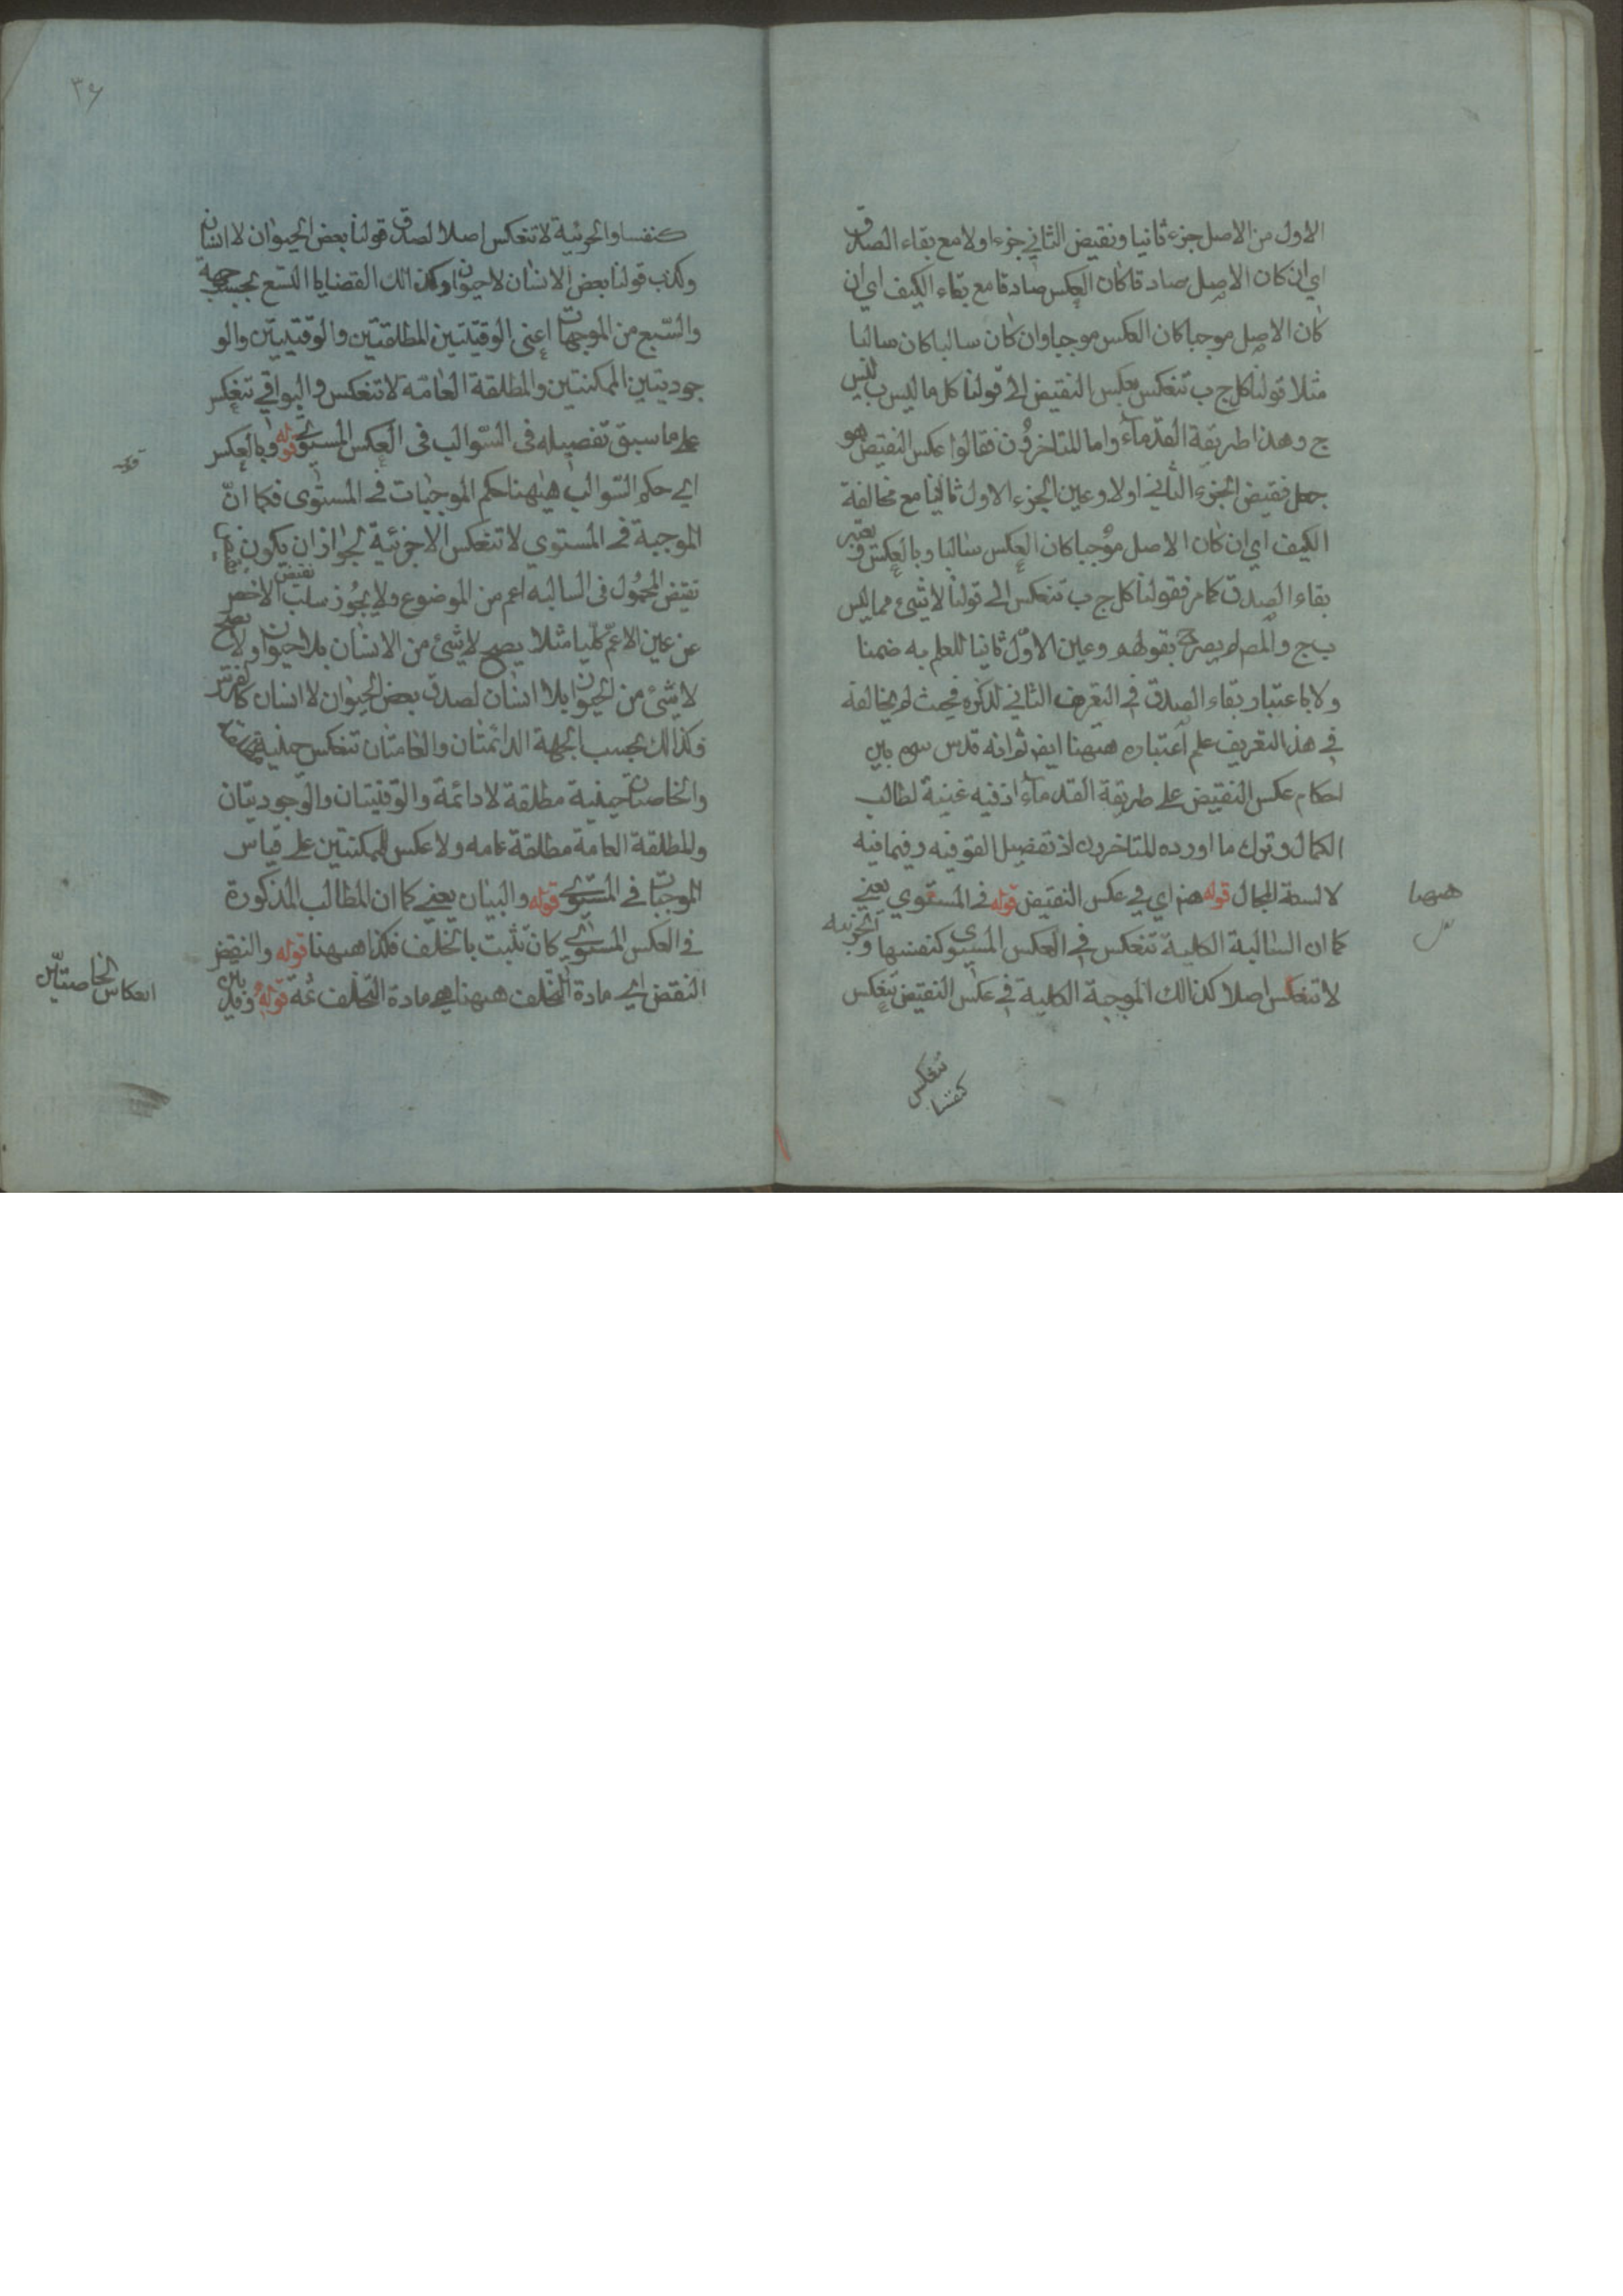 الاول من الاصل جزء ثانيا ونقيض الثاني جزءا ولا مع بقاء الصدق
اي ان كان الاصل صادقا كان العكس صادقا مع بقاء الكيف اي ان
كان الاصل موجبا كان العكس موجبا وان كان سالبا كان سالبا
مثلا قولنا كل ج ب تنعكس بعكس النقيض الى قولنا كل ما ليس ب ليس
ج وهذا طريقة القدماء واما المتاخرون فقالوا عكس النقيض هو
جعل نقيض الجزء الثاني اولا وعين الجزء الاول ثانيا مع مخالفة
الكيف اي ان كان الاصل موجبا كان العكس سالبا وبالعكس و يعتبر
بقاء الصدق كما مر فقولنا كل ج ب تنعكس الى قولنا لا شئ مما ليس
ب ج والمص لم يصرح بقولهم وعين الاول ثانيا للعلم به ضمنا
ولا باعتبار بقاء الصدق في التعريف الثاني لذكره فحيث لم يخالفه
في هذا التعريف علم اعتباره ههنا ايض ثم انه قدس سره بين
احكام عكس النقيض على طريقة القدماء اذ فيه غنية لطالب
الكمال وترك ما اورده المتاخرون اذ تفصيل القو فيه وفيما فيه
لا لسعة المجال قوله هنا اي في عكس النقيض قوله في المستوي يعني
كما ان السالبة الكلية تنعكس في العكس المستوي كنفسها و الجزئيه
لا تنعكس اصلا كذالك الموجبة الكلية في عكس النقيض تنعكس
تنعكس
كنفسها
ههنا
٣٦
كنفسا والجزئية لا تنعكس اصلا لصدق قولنا بعض الحيوان لا انسان
وكذب قولنا بعض الانسان لا حيوان وكذالك القضايا التسع بحسب جهة
والتسع من الموجهات اعني الوقتيتين المطلقتين والوقتيتين والو
جوديتين الممكنتين والمطلقة العامة لا تنعكس والبواقي تنعكس
على ما سبق تفصيله في السوالب في العكس المستوي قوله وبالعكس
اي حكم السوالب ههنا حكم الموجبات في المستوى فكما ان
الموجبة في المستوي لا تنعكس الا جزئية لجواز ان يكون
نقيض المحمول في السالبه اعم من الموضوع ولا يجوز سلب نقيض الاخص
عن عين الاعم كليا مثلا يصح لا شئ من الانسان بلا حيوان ولا يصح
لا شئ من الحيوان بلا انسان لصدق بعض الحيوان لا انسان كالفرس
وكذالك بحسب الجهة الدائمتان والعامتان تنعكس حينية مطلقة
والخاصتان حينية مطلقة لا دائمة والوقتيتان والوجوديتان
والمطلقة العامة مطلقة عامه ولا عكس للممكنتين على قياس
الموجبات في المستوي قوله والبيان يعني كما ان المطالب المذكورة
في العكس المستوي كان تثبت بالخلف فكذا ههنا قوله والنقض
النقض اي مادة التخلف ههنا هي مادة التخلف ثمة قوله وقد بين
انعكاس الخاصتين